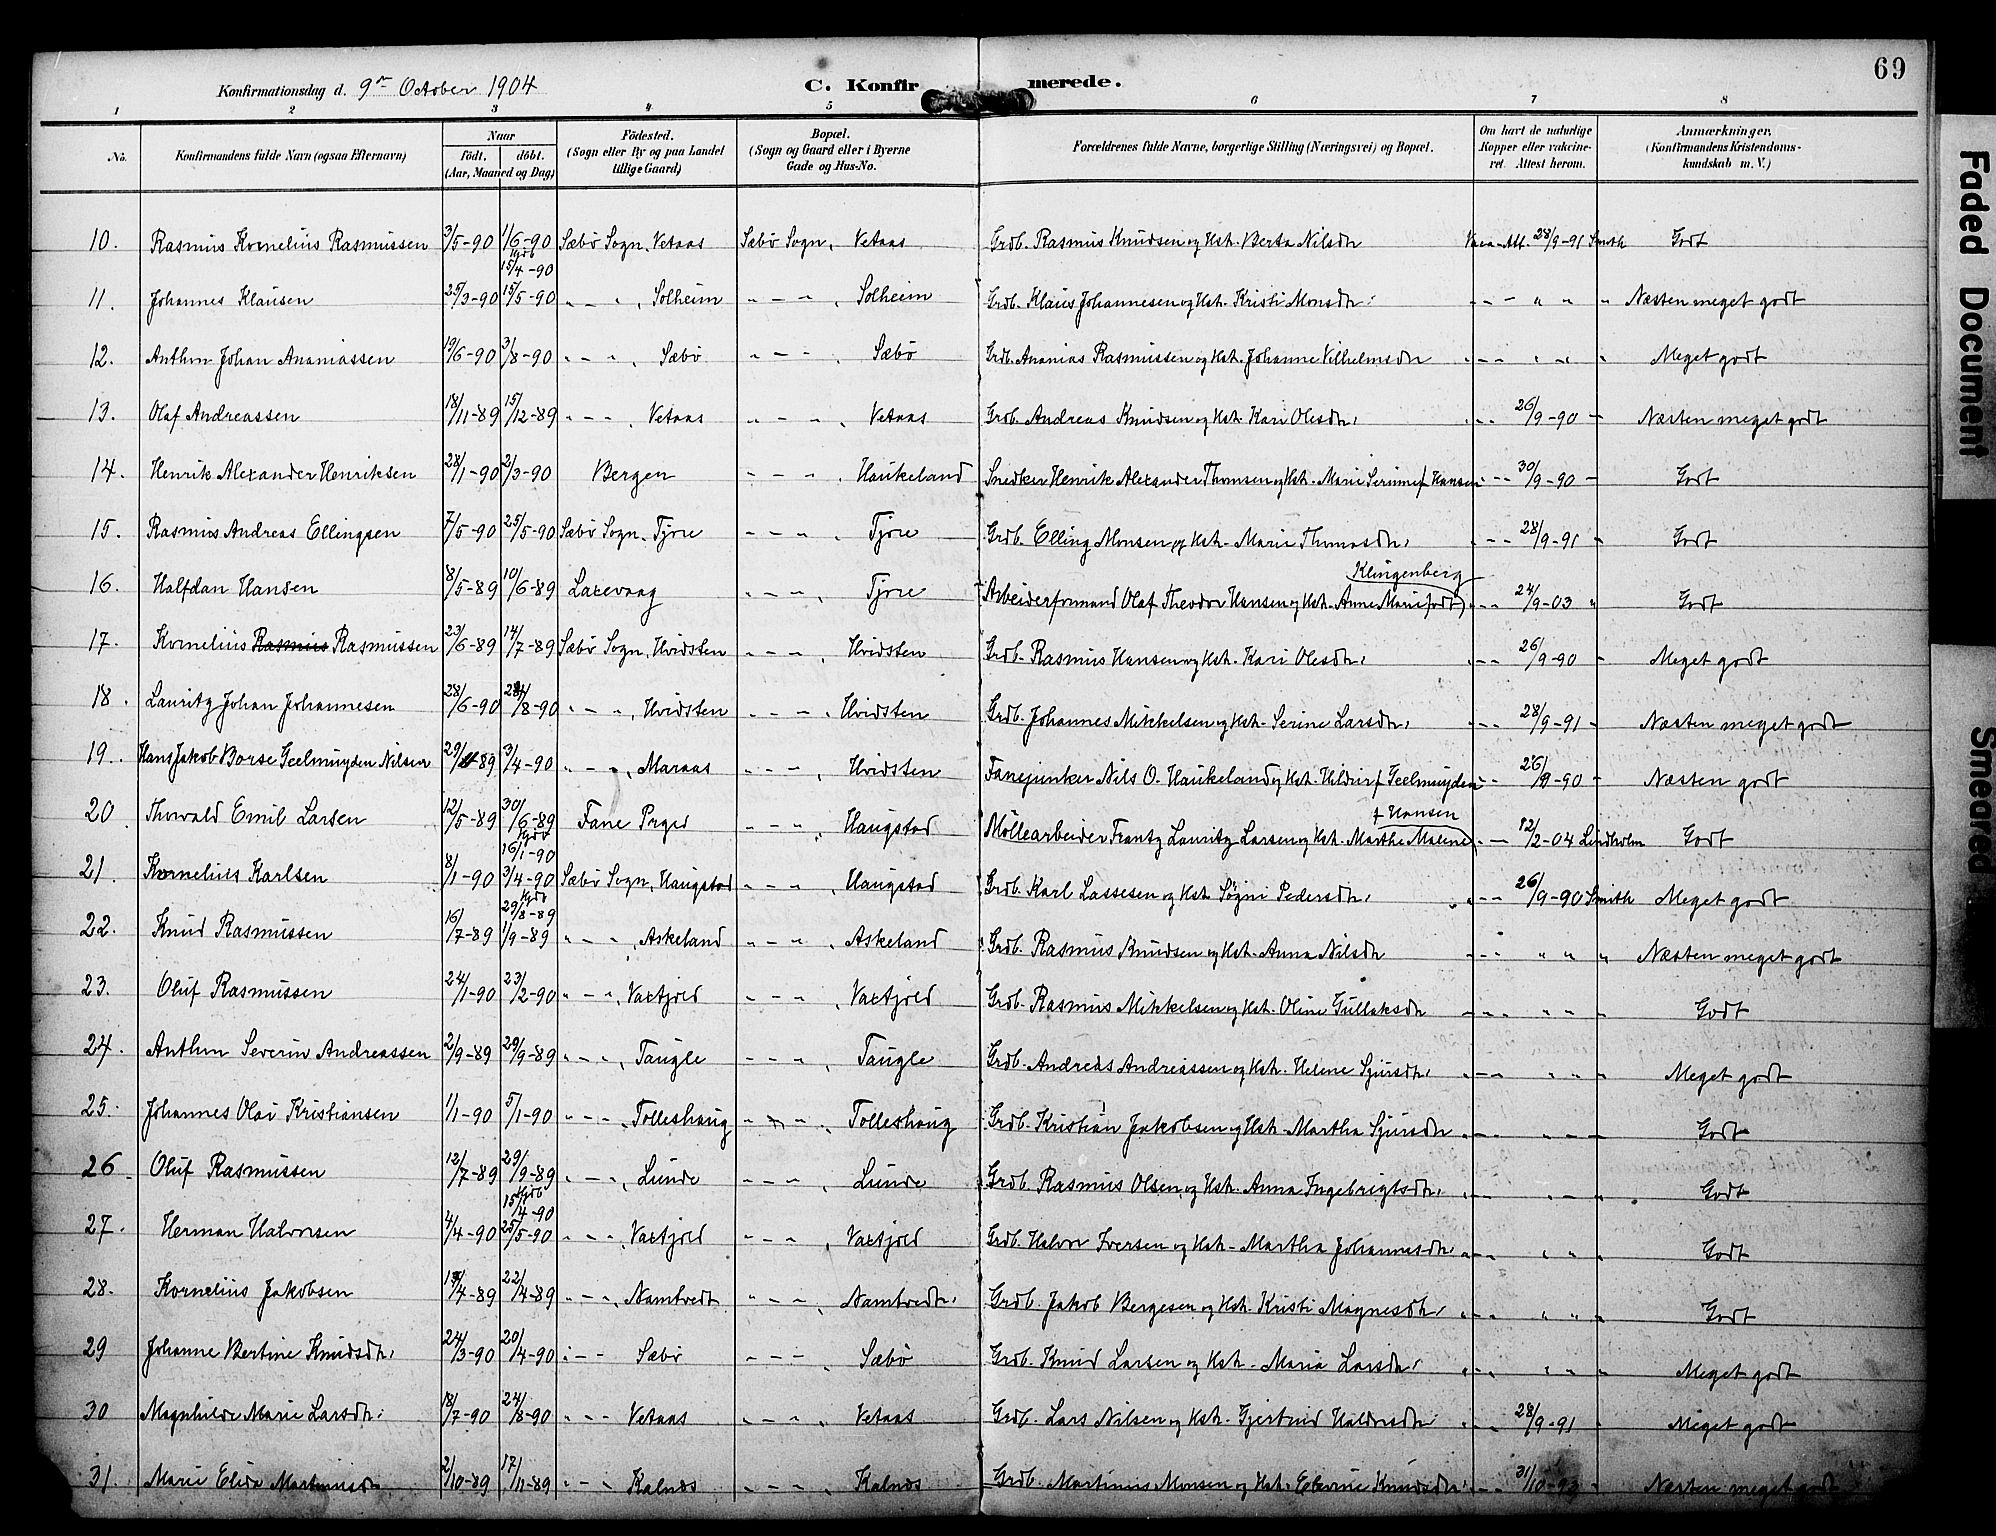 69
Konfirmationsdag d. 9de October 1904 C. Konfirmerede.
1 2 3 4 5 6 7 8
No. Konfirmandens fulde Navn (ogsaa Efternavn) Naar födt. döbt. (Aar, Maaned og Dag) Födested. (Sogn eller By og paa Landet tillige Gaard) Bopæl. (Sogn og Gaard eller i Byerne Gade og Hus-No. Forældrenes fulde Navne, borgerlige Stilling (Næringsvei) og Bopæl. Om havt de naturlige Kopper eller vakcineret. Attest herom. Anmærkninger. (Konfirmandens Kristendomskundskab m. V.)
10. Rasmus Kornelius Rasmussen 3/5-90 1/6-90 Kjdb 15/4-90 Sæbö Sogn, Vetaas Sæbö Sogn, Vetaas Grdb. Rasmus Knudsen og Hst. Berta Nilsdtr Vacc-Att. 28/9-91 Smith Godt
11. Johannes Klausen 25/3-90 15/5-90 " - " , Solheim " - " , Solheim Grdb. Klaus Johannesen og Hst. Kristi Monsdtr. - - - " " " Næsten meget godt
12. Anthon Johan Ananiassen 19/6-90 3/8-90 " - " , Sæbö " - " , Sæbö Grdb. Ananias Rasmussen og Hst. Johanne Vilhelmsdtr " - - " " " Meget godt
13. Olaf Andreassen 18/11-89 15/12-89 " - " , Vetaas " - " , Vetaas Grdb. Andreas Knudsen og Hst. Kari Olesdtr. " - " 26/9-90 - Næsten meget godt
14. Henrik Alexander Henriksen 28/1-90 2/3-90 Bergen " - " , Haukeland Snedker Henrik Alexander Thomsen og Hst. Marie Serine f. Hansen - - 30/9-90 - Godt
15. Rasmus Andreas Ellingsen 7/5-90 25/5-90 Sæbö Sogn, Tjore - - - , Tjore Grdb. Elling Monsen og Hst. Marie Thomasdtr. " - - 28/9-91 - Godt
16. Halfdan Hansen 8/5-89 10/6-89 Laxevaag - - - , Tjore Arbeiderformand Olaf Theodor Hansen og Hst. Anne Marie födt Klingenberg - - - 24/9-03 " Godt
17. Kornelius Rasmus Rasmussen 23/6-89 14/7-89 Sæbö Sogn, Hvidsten - - - , Hvidsten Grdb. Rasmus Hansen og Hst. Kari Olesdtr. " - - 26/9-90 - Meget godt
18. Lauritz Johan Johannesen 28/6-90 24/8-90 " - " , Hvidsten - - - , Hvidsten Grdb. Johannes Mikkelsen og Hst. Serine Larsdtr. " - - 28/9-91 - Næsten meget godt
19. Hans Jakob Borse Geelmuyden Nilsen 3/4-90 " - " , Maraas - - - , Hvidsten Fanejunker Nils O. Haukeland og Hst. f. Geelmuyden - - 26/9-90 - Næsten godt
20. Thorvald Emil Larsen 12/5-89 30/6-89 Fane Prgjd - - - , Haugstad Möllearbeider Frantz Lauritz Larsen og Hst. Marthe Malene f. Hansen - - 12/2-04 Lindholm Godt
21. Kornelius Karlsen 8/1-90 Kjdb 16/1-90 3/4-90 Sæbö Sogn, Haugstad - - - , Haugstad Grdb. Karl Lassesen og Hst. Søgni Pedersdtr. " - - 26/9-90 Smith Meget godt
22. Knud Rasmussen 16/7-89 Kjdb 29/8-89 1/9-89 " - " , Askeland " - " , Askeland Grdb. Rasmus Knudsen og Hst. Anna Nilsdtr - - - " " " Næsten meget godt
23. Oluf Rasmussen 24/1-90 23/2-90 " - " , Vaxtjold - - - , Vaxtjold Grdb. Rasmus Mikkelsen og Hst. Oline Gullaksdtr - - - " " " Godt
24. Anthon Severin Andreassen 2/9-89 29/9-89 " - " , Taugle - - - , Taugle Grdb. Andreas Andreassen og Hst. Helene Sjursdtr. " - - " " " Meget godt
25. Johannes Olai Kristiansen 1/1-90 5/1-90 " - " , Tolleshaug " - " , Tolleshaug Grdb. Kristian Jakobsen og Hst. Martha Sjursdtr " - - " - - Godt
26. Oluf Rasmussen 12/7-89 29/9-89 " - " , Lunde - - - , Lunde Grdb. Rasmus Olsen og Hst. Anna Ingebrigtsdtr. " - - " - " Godt
27. Herman Halvorsen 4/4-90 Kjdb 15/4-90 25/5-90 " - " , Vaxtjold - - - , Vaxtjold Grdb. Halvor Iversen og Hst. Martha Johannesdtr. " - - " " " Godt
28. Kornelius Jakobsen 22/4-89 " - " , Namtvedt " - " , Namtvedt. Grdb. Jakob Bergesen og Hst. Kristi Magnesdtr. " - - " " " Godt
29 Johanne Bertine Knudsdtr. 24/3-90 20/4-90 " - - Sæbö - - - , Sæbö Grdb. Knud Larsen og Hst. Maria Larsdtr. " - - " " " Meget godt
30 Magnhilde Marie Larsdtr. 18/7-90 24/8-90 " - - Vetaas " - " , Vetaas Grdb. Lars Nilsen og Hst. Gjertrud Haldorsdtr " - - 28/9-91 - Meget godt
31. Marie Elida Martinusdtr 2/10-89 17/11-89 " - - Kalnæs - - - , Kalnæs Grdb. Martinus Monsen og Hst. Elevine Knudsdtr. - - 31/10-93 - Næsten meget godt
Faded Document
Smeared